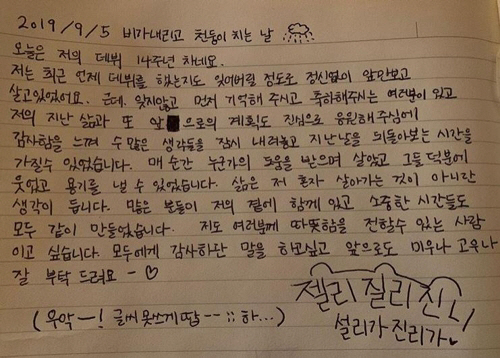 2019/9/5 비가내리고 천둥이 치는 날
오늘은 저의 데뷔 14주년 차네요.
저는 최근 언제 데뷔를 했는지도 잊어버릴 정도로 정신없이 앞만보고
살고있었어요. 근데, 잊지않고 먼저 기억해 주시고 축하해주시는 여러분이 있고
저의 지난 삶과 또 앞으로의 계획도 진심으로 응원해 주심에
감사함을 느껴 수 많은 생각들을 잠시 내려놓고 지난날을 뒤돌아보는 시간을
가질수 있었습니다. 매 순간 누군가의 도움을 받으며 살았고 그들 덕분에
웃었고 용기를 낼 수 있었습니다. 삶은 저 혼자 살아가는 것이 아니란
생각이 듭니다. 많은 분들이 저의 곁에 함께 있고 소중한 시간들도
모두 같이 만들었습니다. 저도 여러분께 따뜻함을 전할수 있는 사람
이고 싶습니다. 모두에게 감사하단 말을 하고싶고 앞으로도 미우나 고우나
잘 부탁 드려요 - ♡
젤리 질리 진리
설리가 진리가♥
(우악-! 글씨 못쓰게땁--;; 하...)